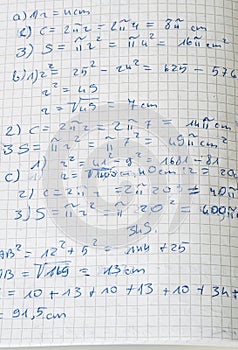 a) r = 4cm
2) C = 2πr = 2π4 = 8π cm
3) S = πr² = π4² = 16π cm²
b) 1) r² = 25² - 24² = 625 - 576
r² = 49
r = √49 = 7 cm
2) C = 2πr = 2π7 = 14π cm
3 S = πr² = π7² = 49π cm²
c) 1) r² = 41² - 9² = 1681 - 81
2) C = 2πr = 2π20 = 40π
3) S = πr² = π20² = 400π
345.
AB² = 12² + 5² = 144 + 25
AB = √169 = 13cm
= 10 + 13 + 10 + 13 + 10 + 34 +
= 91,5cm